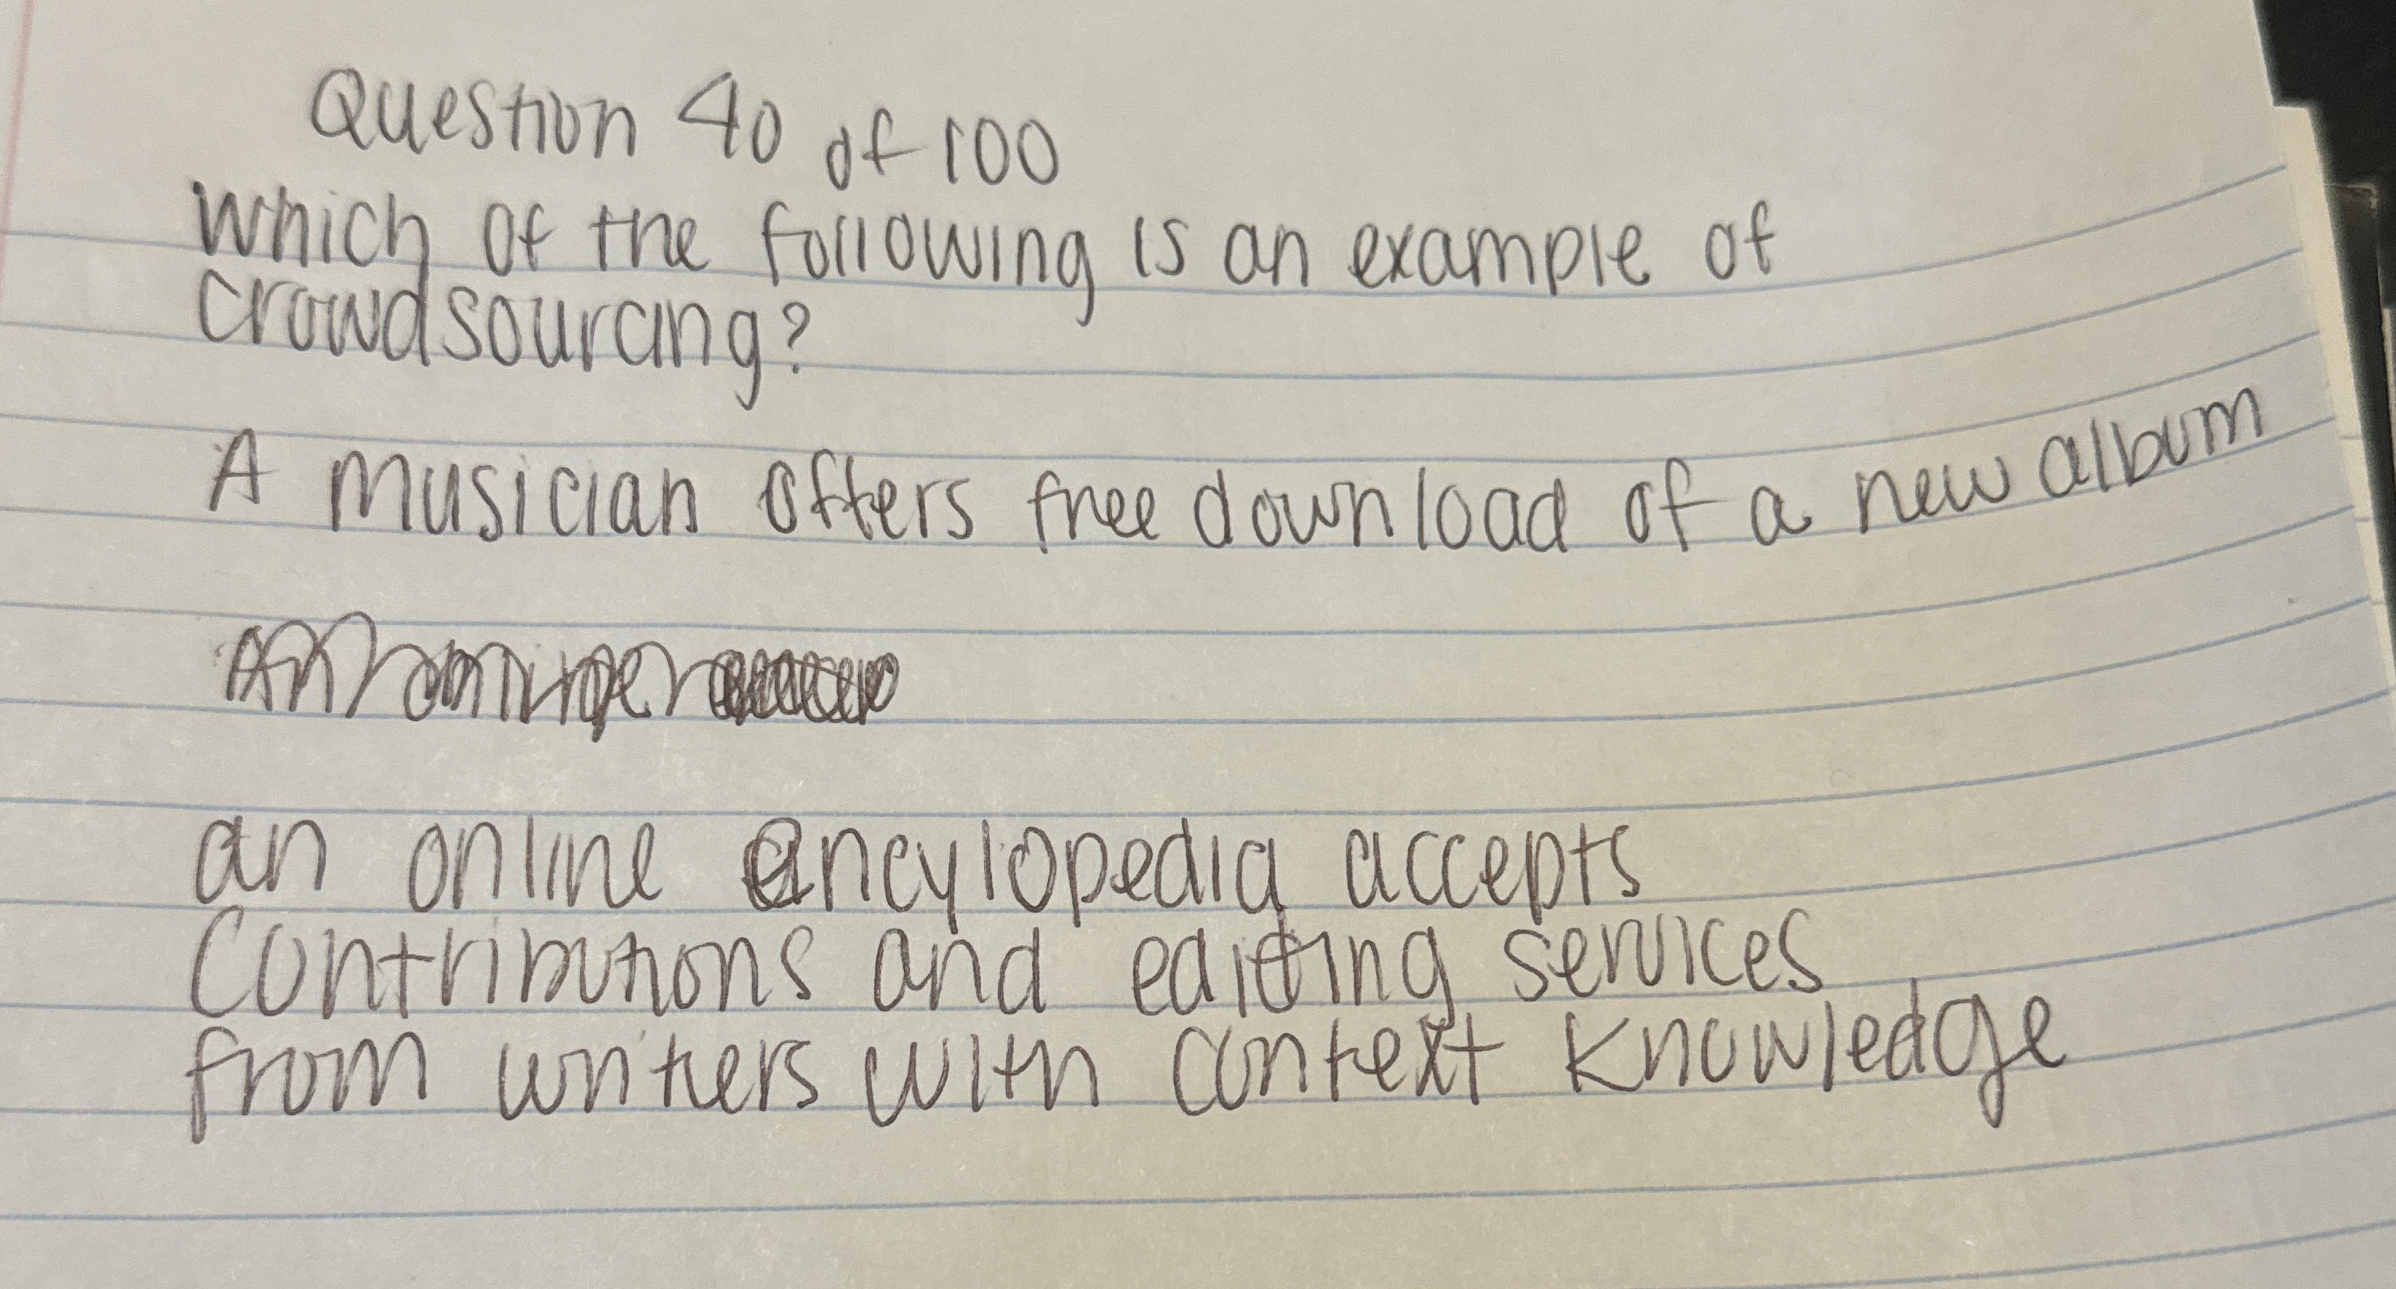 Question 40 of 100
Which of the following is an example of
crowdsourcing?
A musician offers free download of a new album
an online encylopedia accepts
Contributions and editing services
from writers with context knowledge